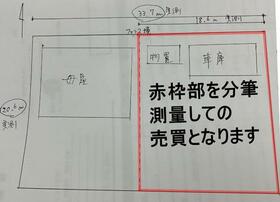 33.7m 実測
18.6m 実測
フェンス塀
物置
車庫
母屋
20.6m
実測
赤枠部を分筆
測量しての
売買となります